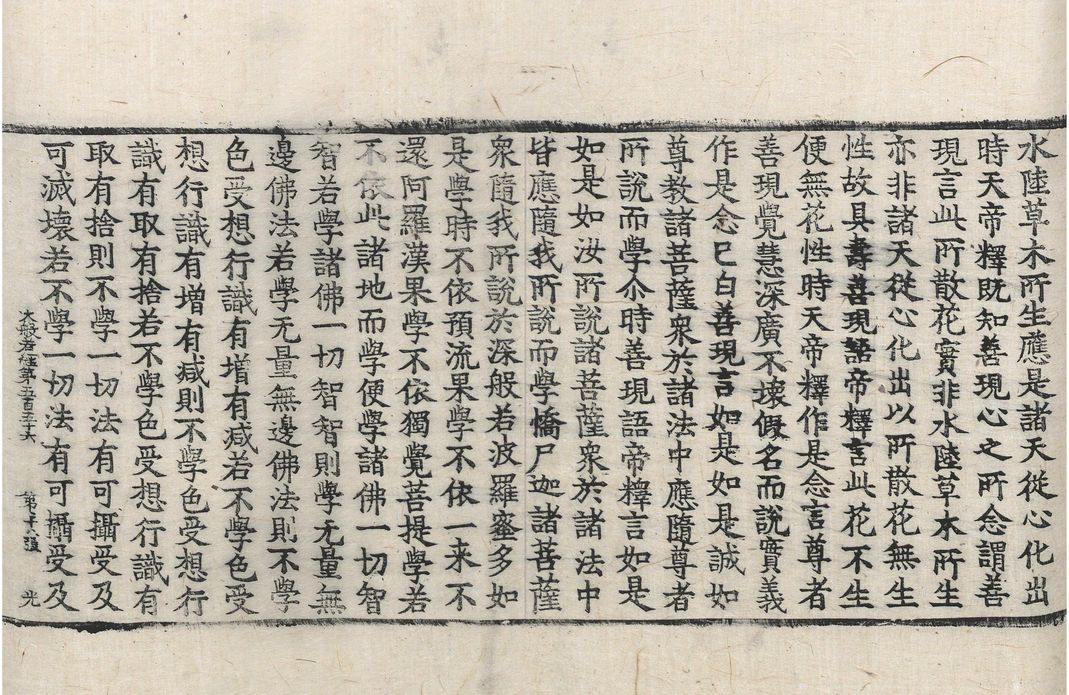 水陸草木所生應是諸天從心化出
時天帝釋既知善現心之所念謂善
現言此所散花實非水陸草木所生
亦非諸天從心化出以所散花無生
性故具壽善現語帝釋言此花不生
便無花性時天帝釋作是念言尊者
善現覺慧深廣不壞假名而說實義
作是念已白善現言如是如是誠如
尊教諸菩薩衆於諸法中應隨尊者
所說而學尒時善現語帝釋言如是
如是如汝所說諸菩薩衆於諸法中
皆應隨我所說而學憍尸迦諸菩薩
衆隨我所說於深般若波羅蜜多如
是學時不依預流果學不依一来不
還阿羅漢果學不依獨覺菩提學若
不依此諸地而學便學諸佛一切智
智若學諸佛一切智智則學无量無
邊佛法若學无量無邊佛法則不學
色受想行識有增有減若不學色受
想行識有增有減則不學色受想行
識有取有捨若不學色受想行識有
取有捨則不學一切法有可攝受及
可滅壞若不學一切法有可攝受及
大般若經第五百五十六 第十張 光